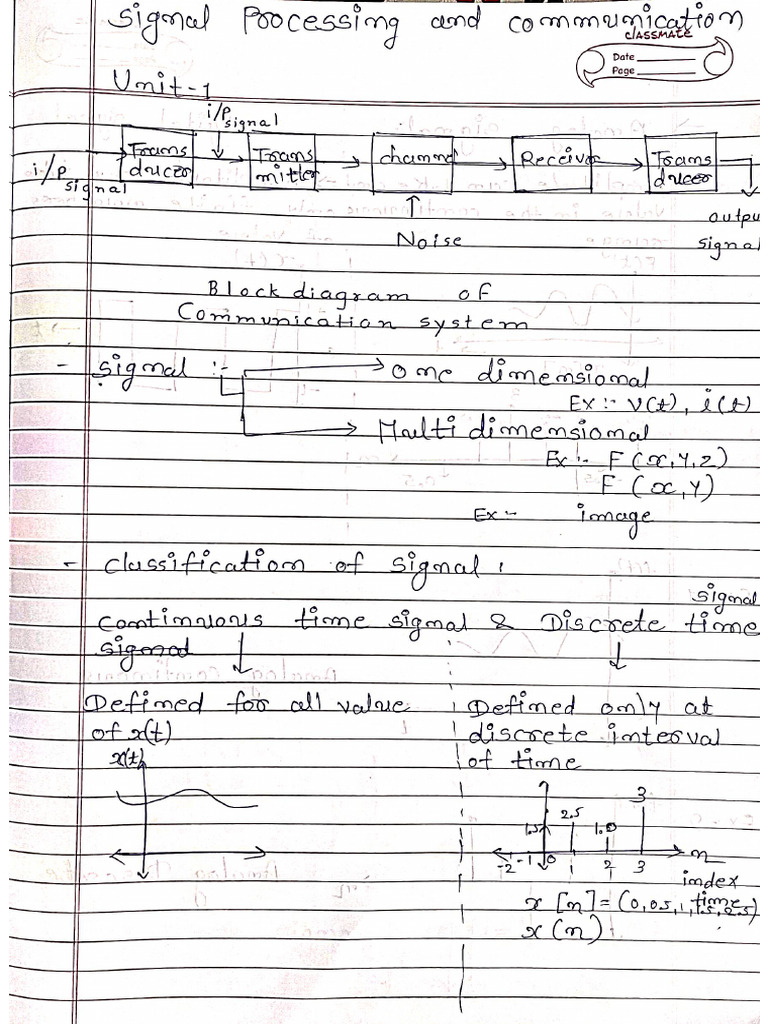 Signal Processing and communication
classmate
Date
Page
Unit-1
i/p signal
i/p signal
Transducer
Transmitter
channel
Receiver
Transducer
Noise
output signal
Block diagram of
Communication system
- signal :-
One dimensional
Ex :- v(t), i(t)
Multi dimensional
Ex :- F(x,y,z)
F(x,y)
Ex :- image
- classification of signal :
signal
continuous time signal & Discrete time
signal
Defined for all value
of x(t)
x(t)
Defined only at
discrete interval
of time
3
2.5
1.5
1.0
-2 -1 0 1 2 3
n
index
time
x[n] = (0, 0.5, 1, 1.5, 2.5)
x(n)